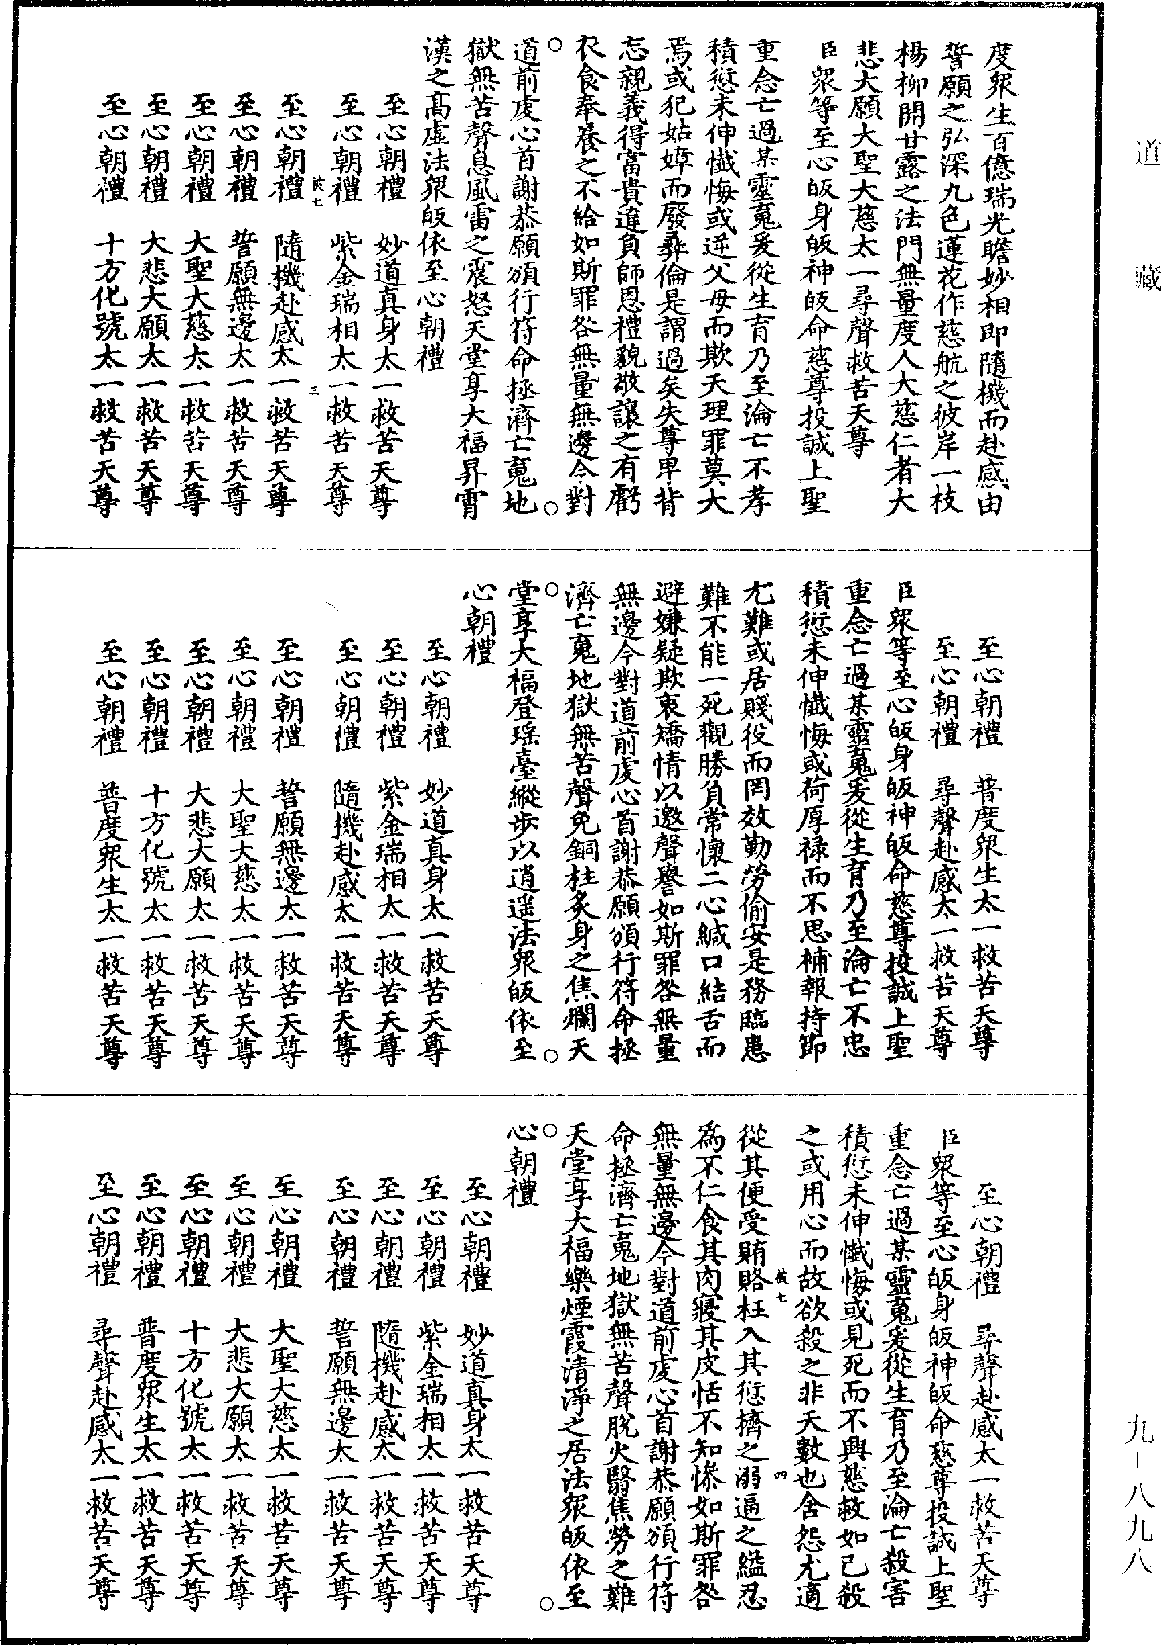 道藏
度衆生百億瑞光瞻妙相即隨機而赴感由
誓願之弘深九色蓮花作慈航之彼岸一枝
楊柳開甘露之法門無量度人大慈仁者大
悲大願大聖大慈太一尋聲救苦天尊
臣衆等至心皈身皈神皈命慈尊投誠上聖
重念亡過某靈䰟爰從生育乃至淪亡不孝
積愆未伸懺悔或逆父母而欺天理罪莫大
焉或犯姑嫜而廢彝倫是謂過矣失尊卑背
忘親義得富貴違負師恩禮貌敬讓之有虧
衣食奉養之不給如斯罪咎無量無邊今對
道前虔心首謝恭願頒行符命拯濟亡䰟地
獄無苦聲息風雷之震怒天堂享大福昇霄
漢之高虛法衆皈依至心朝禮
至心朝禮　妙道真身太一救苦天尊
至心朝禮　紫金瑞相太一救苦天尊
至心朝禮　隨機赴感太一救苦天尊
至心朝禮　誓願無邊太一救苦天尊
至心朝禮　大聖大慈太一救苦天尊
至心朝禮　大悲大願太一救苦天尊
至心朝禮　十方化號太一救苦天尊
至心朝禮　普度衆生太一救苦天尊
至心朝禮　尋聲赴感太一救苦天尊
臣衆等至心皈身皈神皈命慈尊投誠上聖
重念亡過某靈䰟爰從生育乃至淪亡不忠
積愆未伸懺悔或荷厚祿而不思補報持節
尤難或居賤役而罔效勤勞偷安是務臨患
難不能一死觀勝負常懷二心緘口結舌而
避嫌疑欺衷矯情以邀聲譽如斯罪咎無量
無邊今對道前虔心首謝恭願頒行符命拯
濟亡䰟地獄無苦聲免銅柱炙身之焦爛天
堂享大福登瑤臺縱步以逍遥法衆皈依至
心朝禮
至心朝禮　妙道真身太一救苦天尊
至心朝禮　紫金瑞相太一救苦天尊
至心朝禮　隨機赴感太一救苦天尊
至心朝禮　誓願無邊太一救苦天尊
至心朝禮　大聖大慈太一救苦天尊
至心朝禮　大悲大願太一救苦天尊
至心朝禮　十方化號太一救苦天尊
至心朝禮　普度衆生太一救苦天尊
至心朝禮　尋聲赴感太一救苦天尊
臣衆等至心皈身皈神皈命慈尊投誠上聖
重念亡過某靈䰟爰從生育乃至淪亡殺害
積愆未伸懺悔或見死而不興慈救如己殺
之或用心而故欲殺之非天數也舍怨尤適
從其便受賄賂枉入其愆擠之溺逼之縊忍
爲不仁食其肉寢其皮恬不知慘如斯罪咎
無量無邊今對道前虔心首謝恭願頒行符
命拯濟亡䰟地獄無苦聲脫火翳焦勞之難
天堂享大福樂煙霞清淨之居法衆皈依至
心朝禮
至心朝禮　妙道真身太一救苦天尊
至心朝禮　紫金瑞相太一救苦天尊
至心朝禮　隨機赴感太一救苦天尊
至心朝禮　誓願無邊太一救苦天尊
至心朝禮　大聖大慈太一救苦天尊
至心朝禮　大悲大願太一救苦天尊
至心朝禮　十方化號太一救苦天尊
至心朝禮　普度衆生太一救苦天尊
至心朝禮　尋聲赴感太一救苦天尊
九－八九八